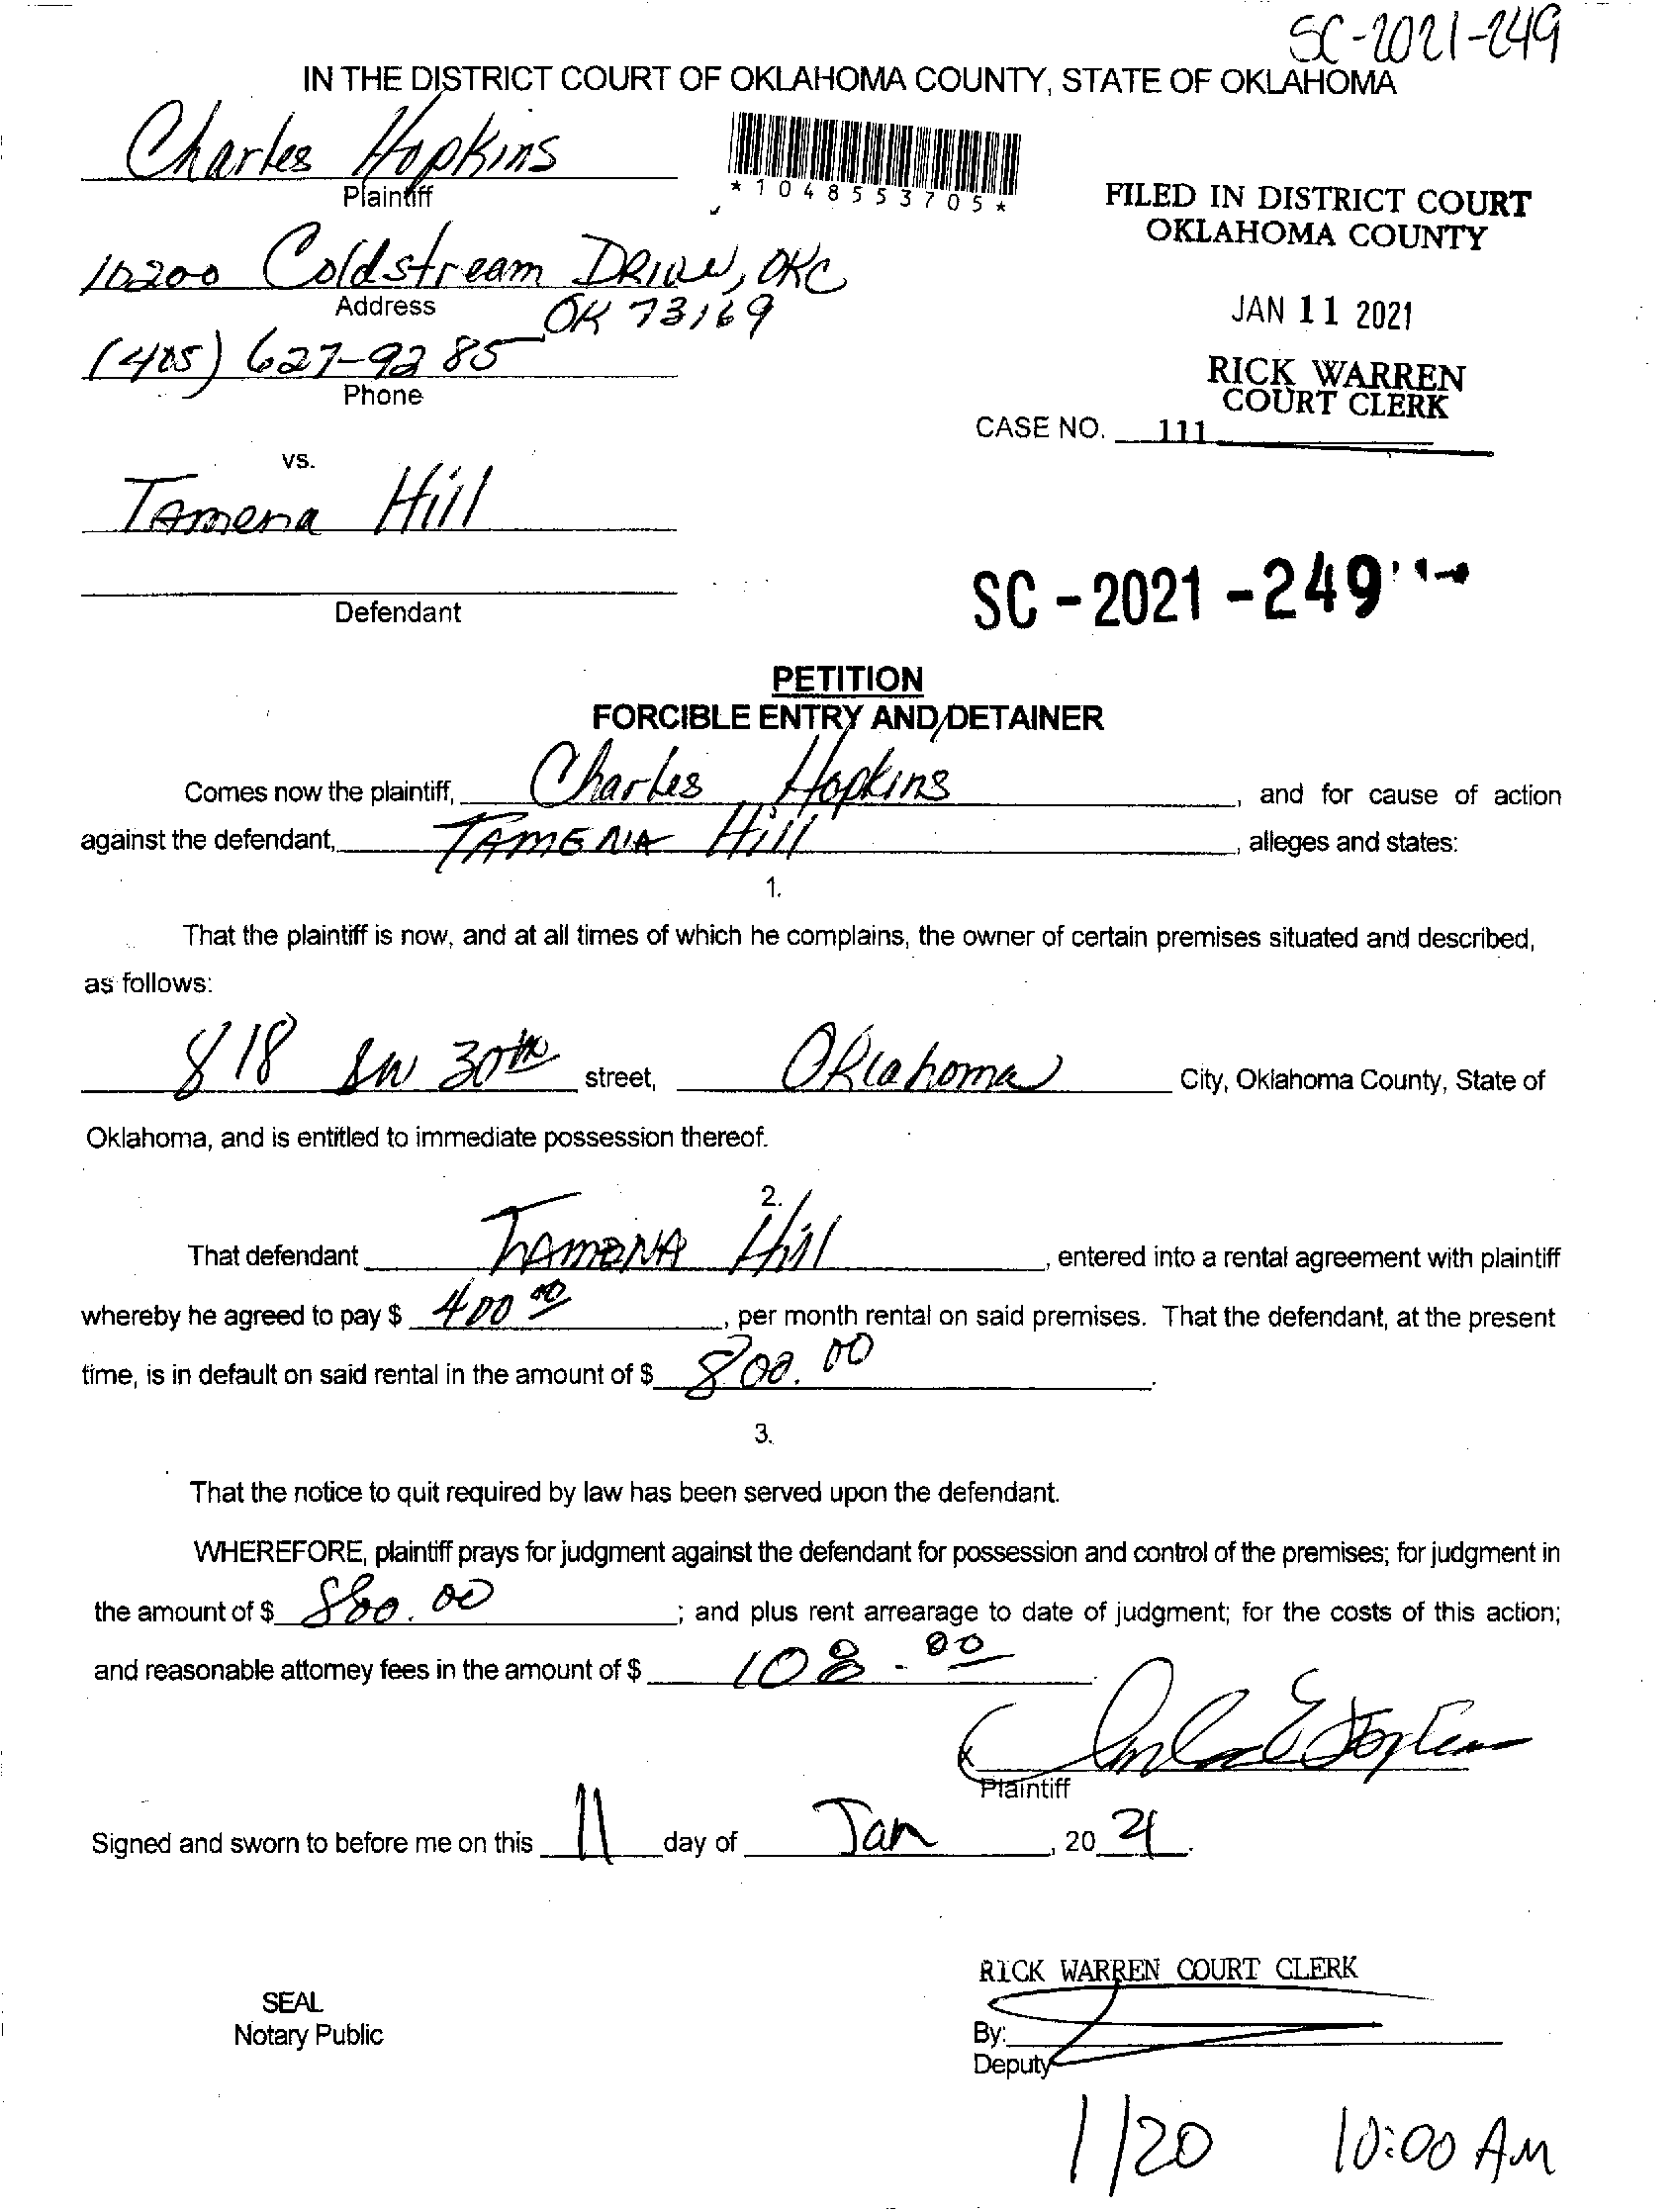 SC-2021-249
IN THE DISTRICT COURT OF OKLAHOMA COUNTY, STATE OF OKLAHOMA
Charles Hopkins
Plaintiff
*1048553705*
FILED IN DISTRICT COURT
OKLAHOMA COUNTY
10200 Coldstream Drive, OKC
Address
OK 73169
JAN 11 2021
(405) 627-9285
Phone
RICK WARREN
COURT CLERK
CASE NO. 111
vs.
Tamena Hill
Defendant
SC-2021-249
PETITION
FORCIBLE ENTRY AND DETAINER
Comes now the plaintiff, Charles Hopkins, and for cause of action
against the defendant, TAMENA Hill, alleges and states:
1.
That the plaintiff is now, and at all times of which he complains, the owner of certain premises situated and described,
as follows:
818 SW 30th street, Oklahoma City, Oklahoma County, State of
Oklahoma, and is entitled to immediate possession thereof.
2.
That defendant TAMENA Hill, entered into a rental agreement with plaintiff
whereby he agreed to pay $ 400.00, per month rental on said premises. That the defendant, at the present
time, is in default on said rental in the amount of $ 800.00.
3.
That the notice to quit required by law has been served upon the defendant.
WHEREFORE, plaintiff prays for judgment against the defendant for possession and control of the premises; for judgment in
the amount of $ 800.00; and plus rent arrearage to date of judgment; for the costs of this action;
and reasonable attorney fees in the amount of $ 108.00.
Plaintiff
Signed and sworn to before me on this 11 day of Jan, 2021.
RICK WARREN COURT CLERK
SEAL
Notary Public
By:
Deputy
1/20 10:00 AM